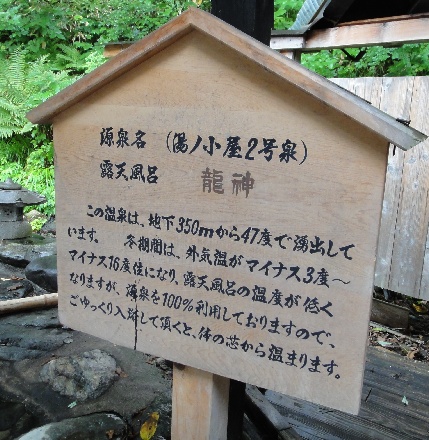 源泉名 (湯ノ小屋2号泉)
露天風呂 龍神
この温泉は、地下350mから47度で湧出して
います。 冬期間は、外気温がマイナス3度〜
マイナス16度位になり、露天風呂の温度が低く
なりますが、源泉を100%利用しておりますので、
ごゆっくり入浴して頂くと、体の芯から温まります。